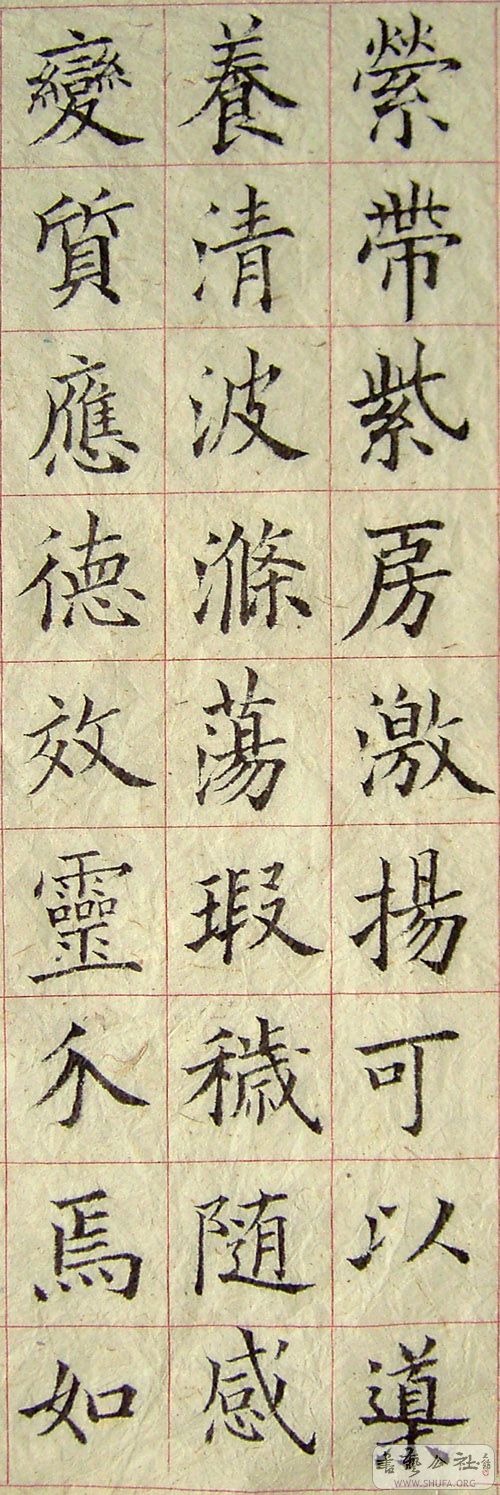 縈帶紫房激揚可以導
養清波滌蕩瑕穢随感
變質應德效靈尒焉如
書藝公社
WWW.SHUFA.ORG